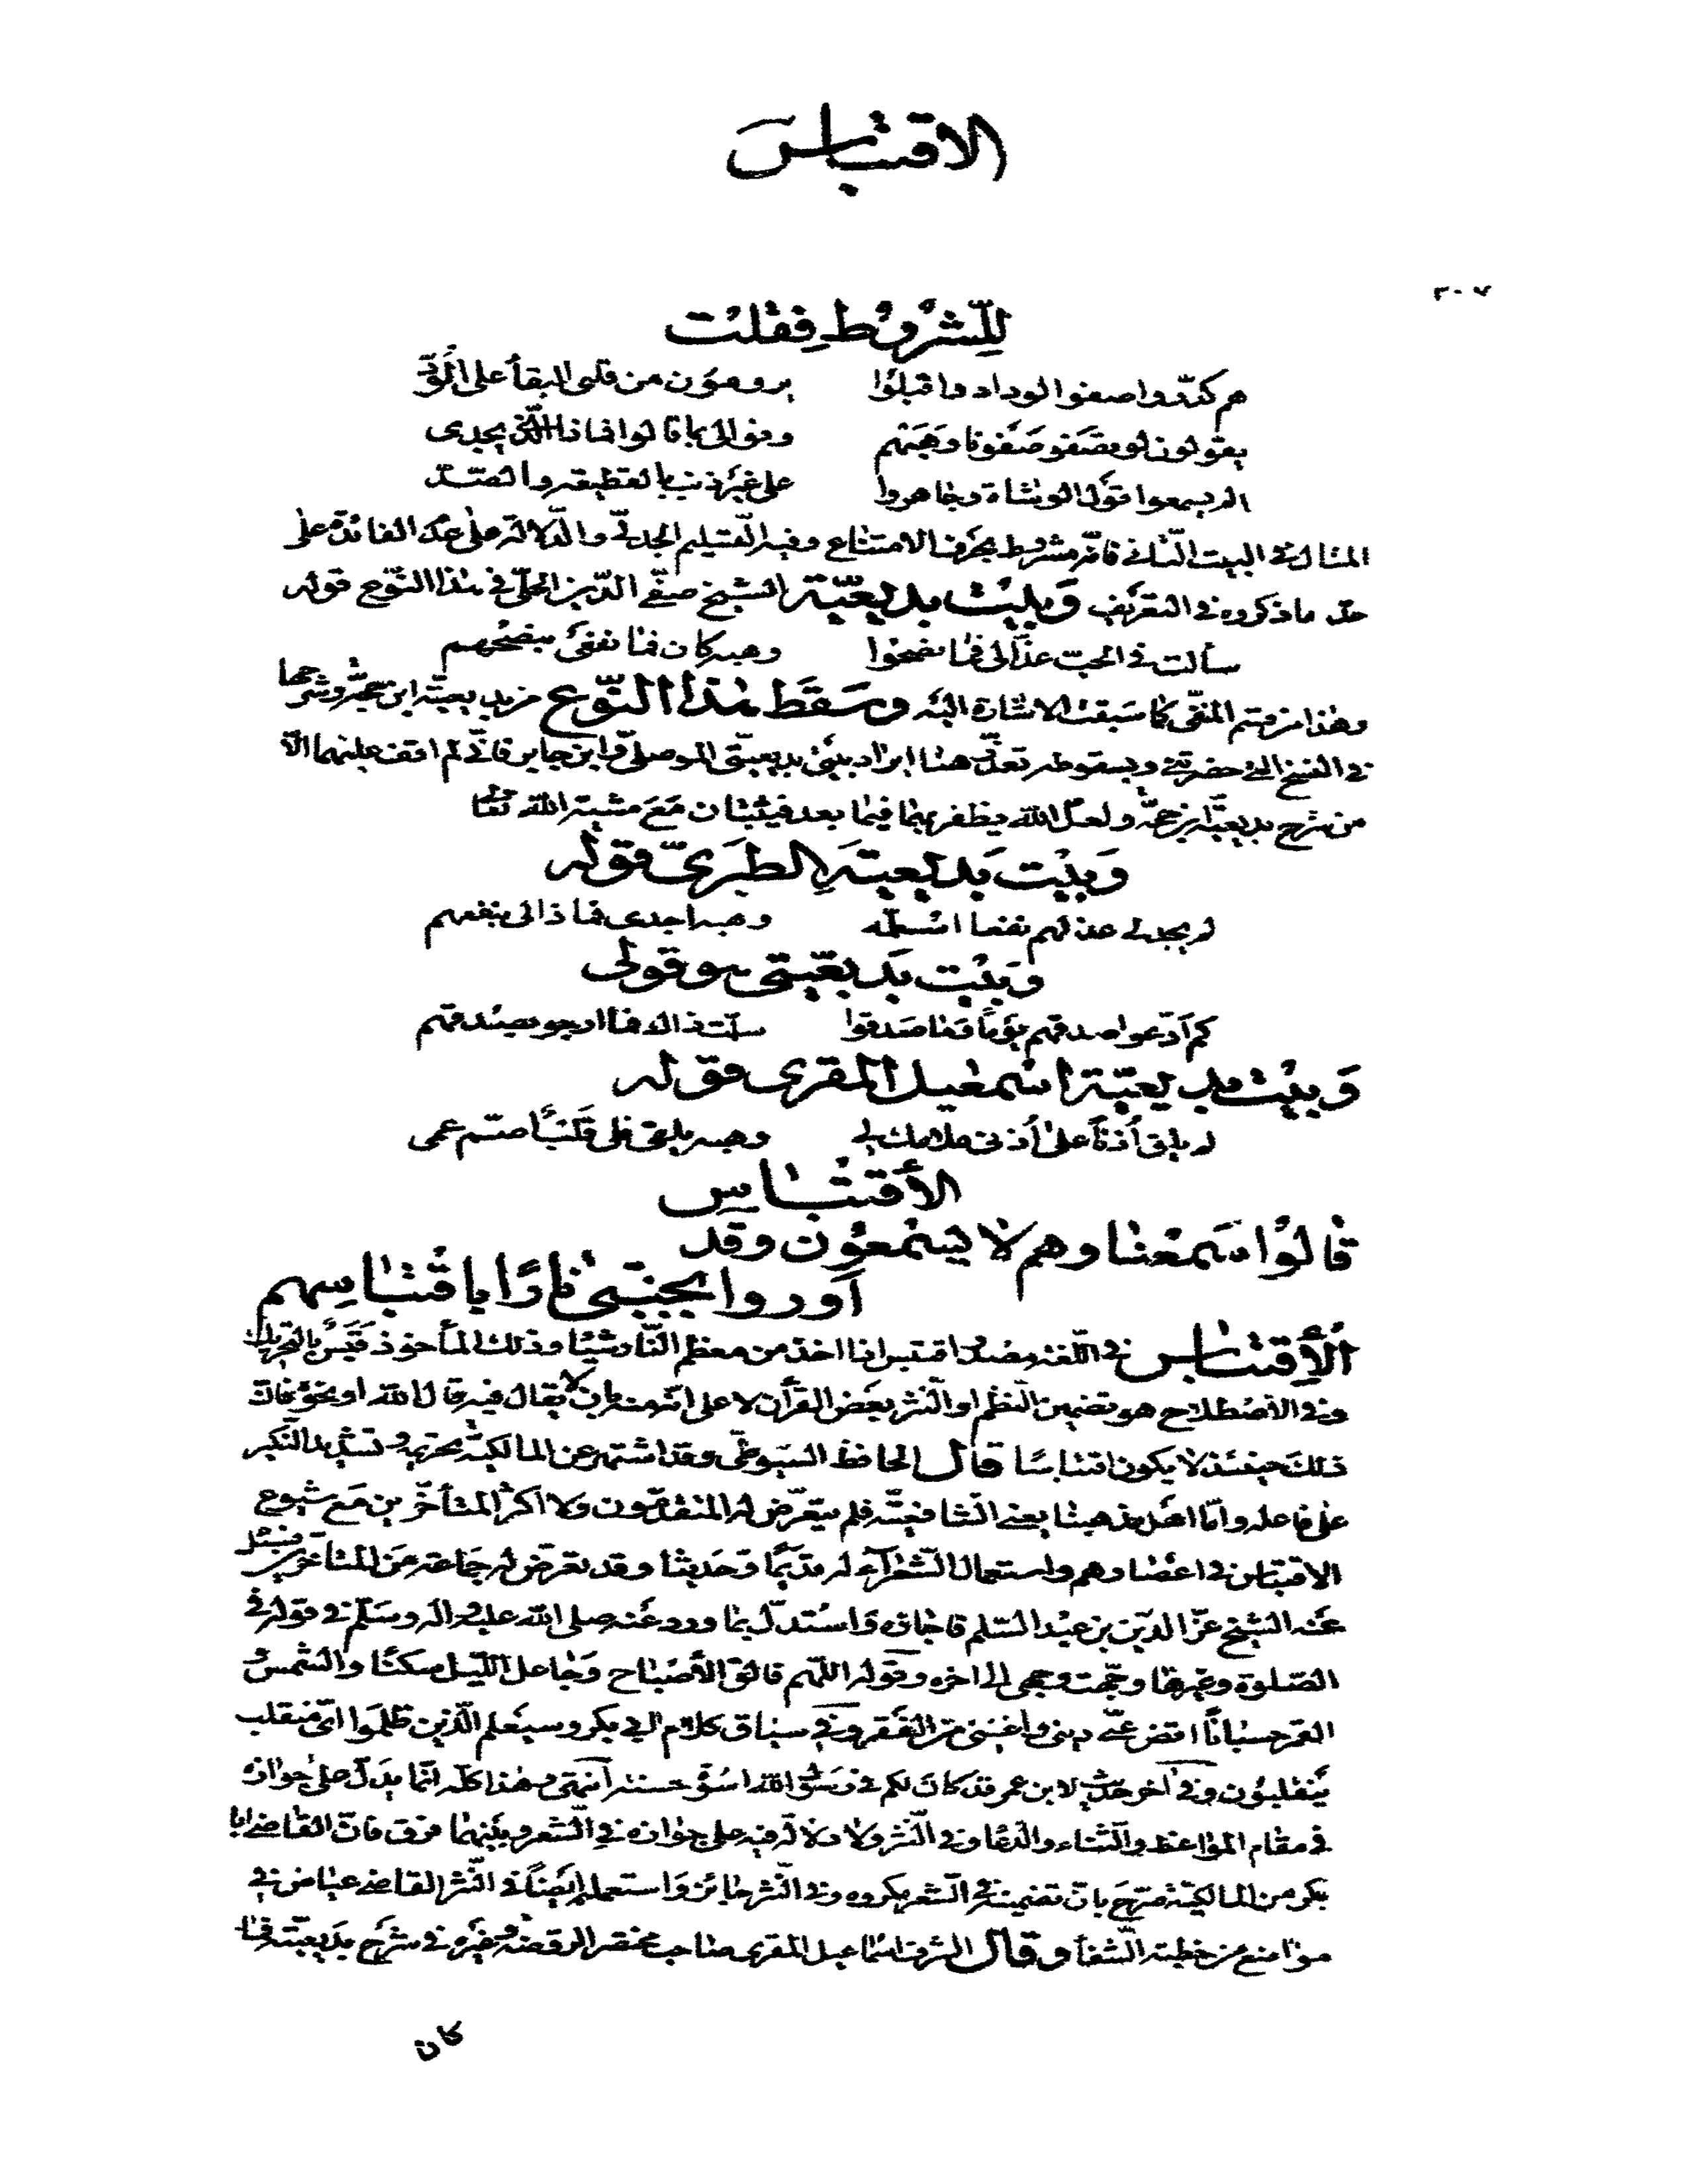 الاقتباس
٢٠٧
للشروط فقلت
هم كدّروا صفو الوداد واقبلوا يرومون من قلبي البقاء على الودّ
يقولون لو يصفو صفونا وهبتهم وفوا لي بما قالوا فما ذا الّذي يجدي
الم يسمعوا قول الوشاة وجاهروا على غير ذنب بالقطيعة والصدّ
المثال في البيت الثاني فانّه مشروط بحرف الامتناع وفيه التسليم الجدلي والدّلالة على عدم الفائدة على
حدّ ما ذكروه في التعريف وبيت بديعيّة الشيخ صفيّ الدّين الحلّي في هذا النّوع قوله
سألت في الحبّ عذّالي فما نصحوا وهبه كان فما نفعي بنصحهم
وهذا من قسم المنفي كما سبقت الاشارة اليه وسقط هذا النّوع من بديعيّة ابن حجّة وشرحها
في النسخ الّتي حضرتني وبسقوطه تعذّر هنا ايراد بيتي بديعيّتي الموصلي وابن جابر فانّي لم اقف عليهما الّا
من شرح بديعيّة ابن حجّة ولعلّ الله يظفر بهما فيما بعد فيثبتان مع مشيّة الله تعالى
وبيت بديعيّة الطبري قوله
لم يجد لي عذلهم نفعا اسلّمه وهبه اجدى فما ذا لي بنفعهم
وبيت بديعيّتي هو قولي
كم ادّعوا صدقهم يوما وما صدقوا سلّمت ذاك فما ارجو بصدقهم
وبيت بديعيّة اسمعيل المقري قوله
لم يلق أذنا على أذني ملامك لي وهبه يلقى فلي قلبًا صمّم عمي
الأقتباس
قالوا سمعنا وهم لا يسمعون وقد
أوروا بجنبيّ نارًا باقتباسهم
الأقتباس في اللّغة مصدر اقتبس اذا اخذ من معظم النّار شيئا وذلك المأخوذ قبس بالتحريك
وفي الأصطلاح هو تضمين النّظم او النّثر بعض القرآن لا على انّه منه بان لا يقال فيه قال الله او نحوه فانّ
ذلك حينئذ لا يكون اقتباسًا قال الحافظ السيوطي وقد اشتهر عن المالكيّة تحريمه وتشديد النّكير
على فاعله وامّا اهل مذهبنا يعني الشافعيّة فلم يتعرّض له المتقدّمون ولا اكثر المتأخّرين مع شيوع
الاقتباس في اعصارهم واستعمال الشّعراء له قديمًا وحديثا وقد تعرّض له جماعة من المتأخّرين فسئل
عنه الشيخ عزّ الدّين بن عبد السّلم فاجازه واستدلّ بما ورد عنه صلى الله عليه واله وسلّم في قوله في
الصّلوة وغيرها وجّهت وجهي الى اخره وقوله اللّهم فالق الأصباح وجاعل اللّيل سكنًا والشّمس و
القمر حسبانًا اقض عنّي ديني واغنني من الفقر وفي سياق كلام لابي بكر وسيعلم الّذين ظلموا ايّ منقلب
ينقلبون وفي آخر حديث لابن عمر قد كان لكم في رسول الله اسوة حسنة انتهى وهذا كلّه انّما يدلّ على جوازه
في مقام المواعظ والثّناء والدّعا وفي النّثر ولا دلالة فيه على جوازه في الشّعر وبينهما فرق فانّ القاضي ابا
بكر من المالكيّة صرّح بانّ تضمينه في الشّعر مكروه وفي النّثر جائز واستعمله ايضًا في النّثر القاضي عياض في
مواضع من خطبة الشّفا وقال الشرف اسماعيل المقري صاحب مختصر الروضة وغيره في شرح بديعيّته ما
كان